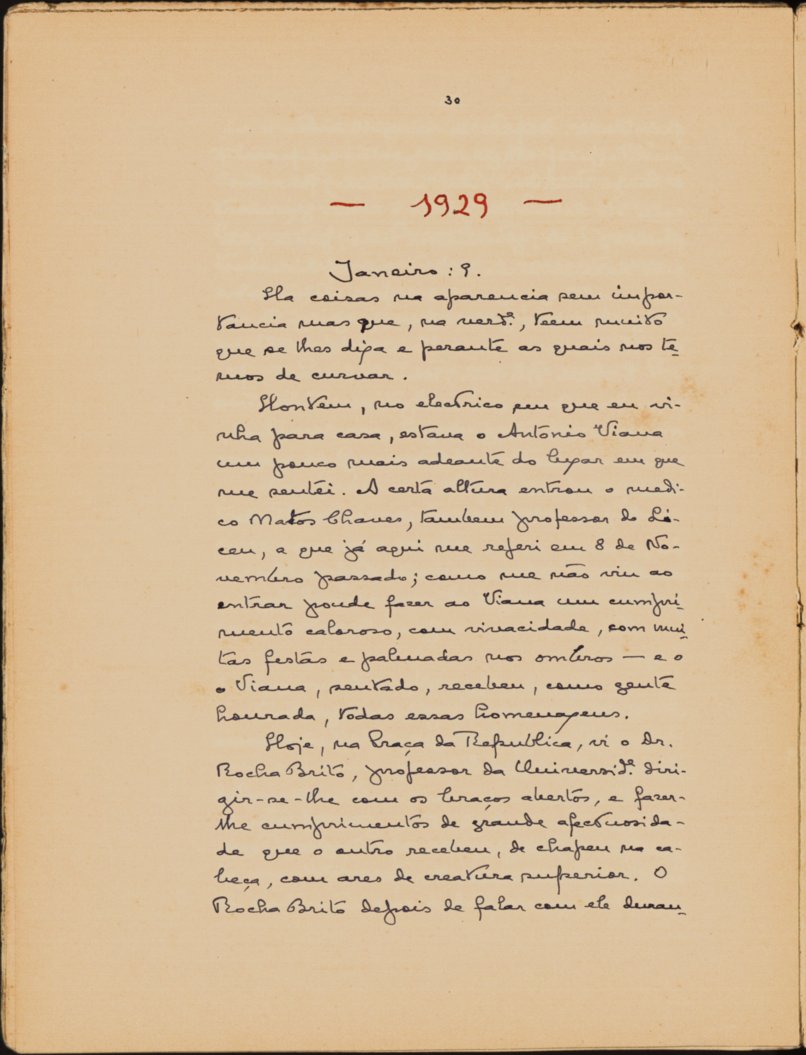 30
— 1929 —
Janeiro: 9.
Ha coisas na aparencia sem impor-
tancia mas que, na verd.e, teem muito
que se lhes diga e perante as quais nos te-
mos de curvar.
Hontem, no electrico em que eu vi-
nha para casa, estava o António Viana
um pouco mais adeante do lugar em que
me sentei. A certa altura entrou o medi-
co Matos Chaves, tambem professor do Li-
ceu, a que já aqui me referi em 8 de No-
vembro passado; como me não viu ao
entrar poude fazer ao Viana um cumpri-
mento caloroso, com vivacidade, com mui-
tas festas e palmadas nos ombros — e o
o Viana, sentado, recebeu, como gente
honrada, todas essas homenagens.
Hoje, na Praça da Republica, vi o Dr.
Rocha Brito, professor da Universid.e diri-
gir-se-lhe com os braços abertos, e fazer-
lhe cumprimentos de grande afectuosida-
de que o outro recebeu, de chapeu na ca-
beça, com ares de creatura superior. O
Rocha Brito depois de falar com ele duran-